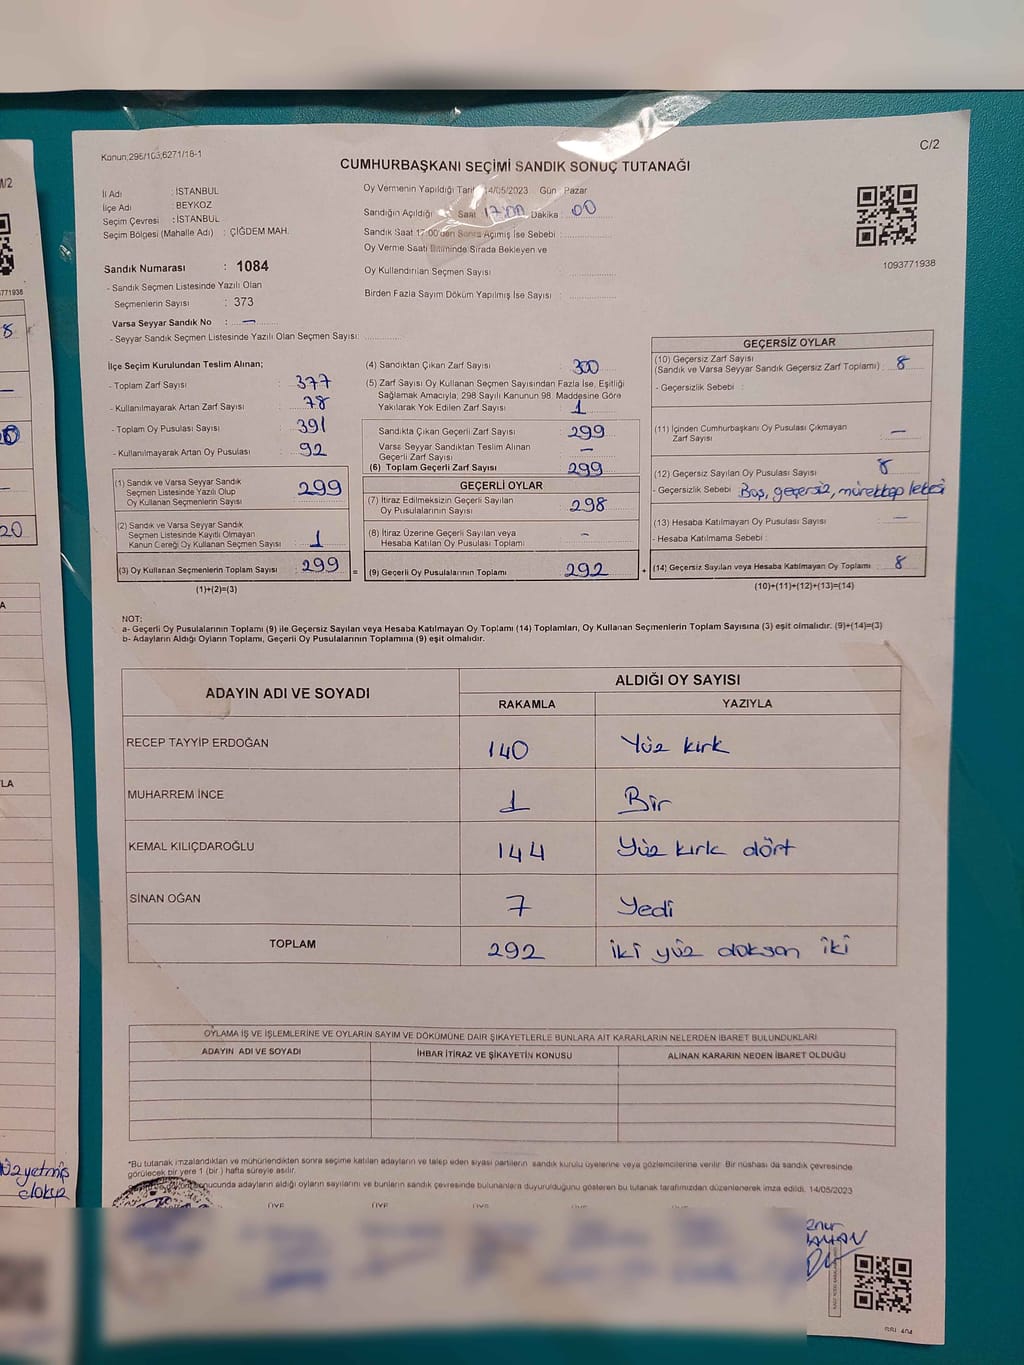 Konun;298/103,6271/18-1
C/2
CUMHURBAŞKANI SEÇİMİ SANDIK SONUÇ TUTANAĞI
İl Adı : İSTANBUL
İlçe Adı : BEYKOZ
Seçim Çevresi : İSTANBUL
Seçim Bölgesi (Mahalle Adı) : ÇİĞDEM MAH.
Sandık Numarası : 1084
- Sandık Seçmen Listesinde Yazılı Olan
Seçmenlerin Sayısı : 373
Varsa Seyyar Sandık No : —
- Seyyar Sandık Seçmen Listesinde Yazılı Olan Seçmen Sayısı:
Oy Vermenin Yapıldığı Tarih 14/05/2023 Gün Pazar
Sandığın Açıldığı Saat 17:00 Dakika : 00
Sandık Saat 17:00'den Sonra Açılmış İse Sebebi :
Oy Verme Saati Bitiminde Sırada Bekleyen ve
Oy Kullandırılan Seçmen Sayısı :
Birden Fazla Sayım Döküm Yapılmış İse Sayısı :
1093771938
İlçe Seçim Kurulundan Teslim Alınan;
- Toplam Zarf Sayısı : 377
- Kullanılmayarak Artan Zarf Sayısı : 78
- Toplam Oy Pusulası Sayısı : 391
- Kullanılmayarak Artan Oy Pusulası : 92
(1) Sandık ve Varsa Seyyar Sandık
Seçmen Listesinde Yazılı Olup
Oy Kullanan Seçmenlerin Sayısı 299
(2) Sandık ve Varsa Seyyar Sandık
Seçmen Listesinde Kayıtlı Olmayan
Kanun Gereği Oy Kullanan Seçmen Sayısı 1
(3) Oy Kullanan Seçmenlerin Toplam Sayısı 299 =
(1)+(2)=(3)
(4) Sandıktan Çıkan Zarf Sayısı 300
(5) Zarf Sayısı Oy Kullanan Seçmen Sayısından Fazla İse, Eşitliği
Sağlamak Amacıyla; 298 Sayılı Kanunun 98. Maddesine Göre
Yakılarak Yok Edilen Zarf Sayısı : 1
Sandıkta Çıkan Geçerli Zarf Sayısı 299
Varsa Seyyar Sandıktan Teslim Alınan
Geçerli Zarf Sayısı —
(6) Toplam Geçerli Zarf Sayısı 299
GEÇERLİ OYLAR
(7) İtiraz Edilmeksizin Geçerli Sayılan
Oy Pusulalarının Sayısı 298
(8) İtiraz Üzerine Geçerli Sayılan veya
Hesaba Katılan Oy Pusulası Toplamı —
(9) Geçerli Oy Pusulalarının Toplamı 292 +
GEÇERSİZ OYLAR
(10) Geçersiz Zarf Sayısı
(Sandık ve Varsa Seyyar Sandık Geçersiz Zarf Toplamı) : 8
- Geçersizlik Sebebi :
(11) İçinden Cumhurbaşkanı Oy Pusulası Çıkmayan
Zarf Sayısı —
(12) Geçersiz Sayılan Oy Pusulası Sayısı 8
- Geçersizlik Sebebi Boş, geçersiz, mürekkep lekesi
(13) Hesaba Katılmayan Oy Pusulası Sayısı —
- Hesaba Katılmama Sebebi :
(14) Geçersiz Sayılan veya Hesaba Katılmayan Oy Toplamı 8
(10)+(11)+(12)+(13)=(14)
NOT:
a- Geçerli Oy Pusulalarının Toplamı (9) ile Geçersiz Sayılan veya Hesaba Katılmayan Oy Toplamı (14) Toplamları, Oy Kullanan Seçmenlerin Toplam Sayısına (3) eşit olmalıdır. (9)+(14)=(3)
b- Adayların Aldığı Oyların Toplamı, Geçerli Oy Pusulalarının Toplamına (9) eşit olmalıdır.
ADAYIN ADI VE SOYADI ALDIĞI OY SAYISI
RAKAMLA YAZIYLA
RECEP TAYYİP ERDOĞAN 140 Yüz kırk
MUHARREM İNCE 1 Bir
KEMAL KILIÇDAROĞLU 144 Yüz kırk dört
SİNAN OĞAN 7 Yedi
TOPLAM 292 iki yüz doksan iki
OYLAMA İŞ VE İŞLEMLERİNE VE OYLARIN SAYIM VE DÖKÜMÜNE DAİR ŞİKAYETLERLE BUNLARA AİT KARARLARIN NELERDEN İBARET BULUNDUKLARI
ADAYIN ADI VE SOYADI İHBAR İTİRAZ VE ŞİKAYETİN KONUSU ALINAN KARARIN NEDEN İBARET OLDUĞU
*Bu tutanak imzalandıktan ve mühürlendikten sonra seçime katılan adayların ve talep eden siyasi partilerin sandık kurulu üyelerine veya gözlemcilerine verilir. Bir nüshası da sandık çevresinde
görülecek bir yere 1 (bir) hafta süreyle asılır.
sonucunda adayların aldığı oyların sayılarını ve bunların sandık çevresinde bulunanlara duyurulduğunu gösteren bu tutanak tarafımızdan düzenlenerek imza edildi. 14/05/2023
ÜYE ÜYE ÜYE